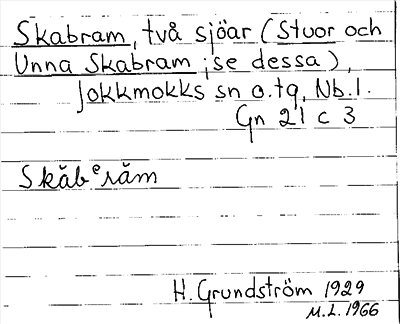 Skabram, två sjöar (Stuor och
Unna Skabram ; se dessa),
Jokkmokks sn o. tg, Nb. l.
Gn 21 c 3
Skăbᵉrăm
H. Grundström 1929
M.L. 1966